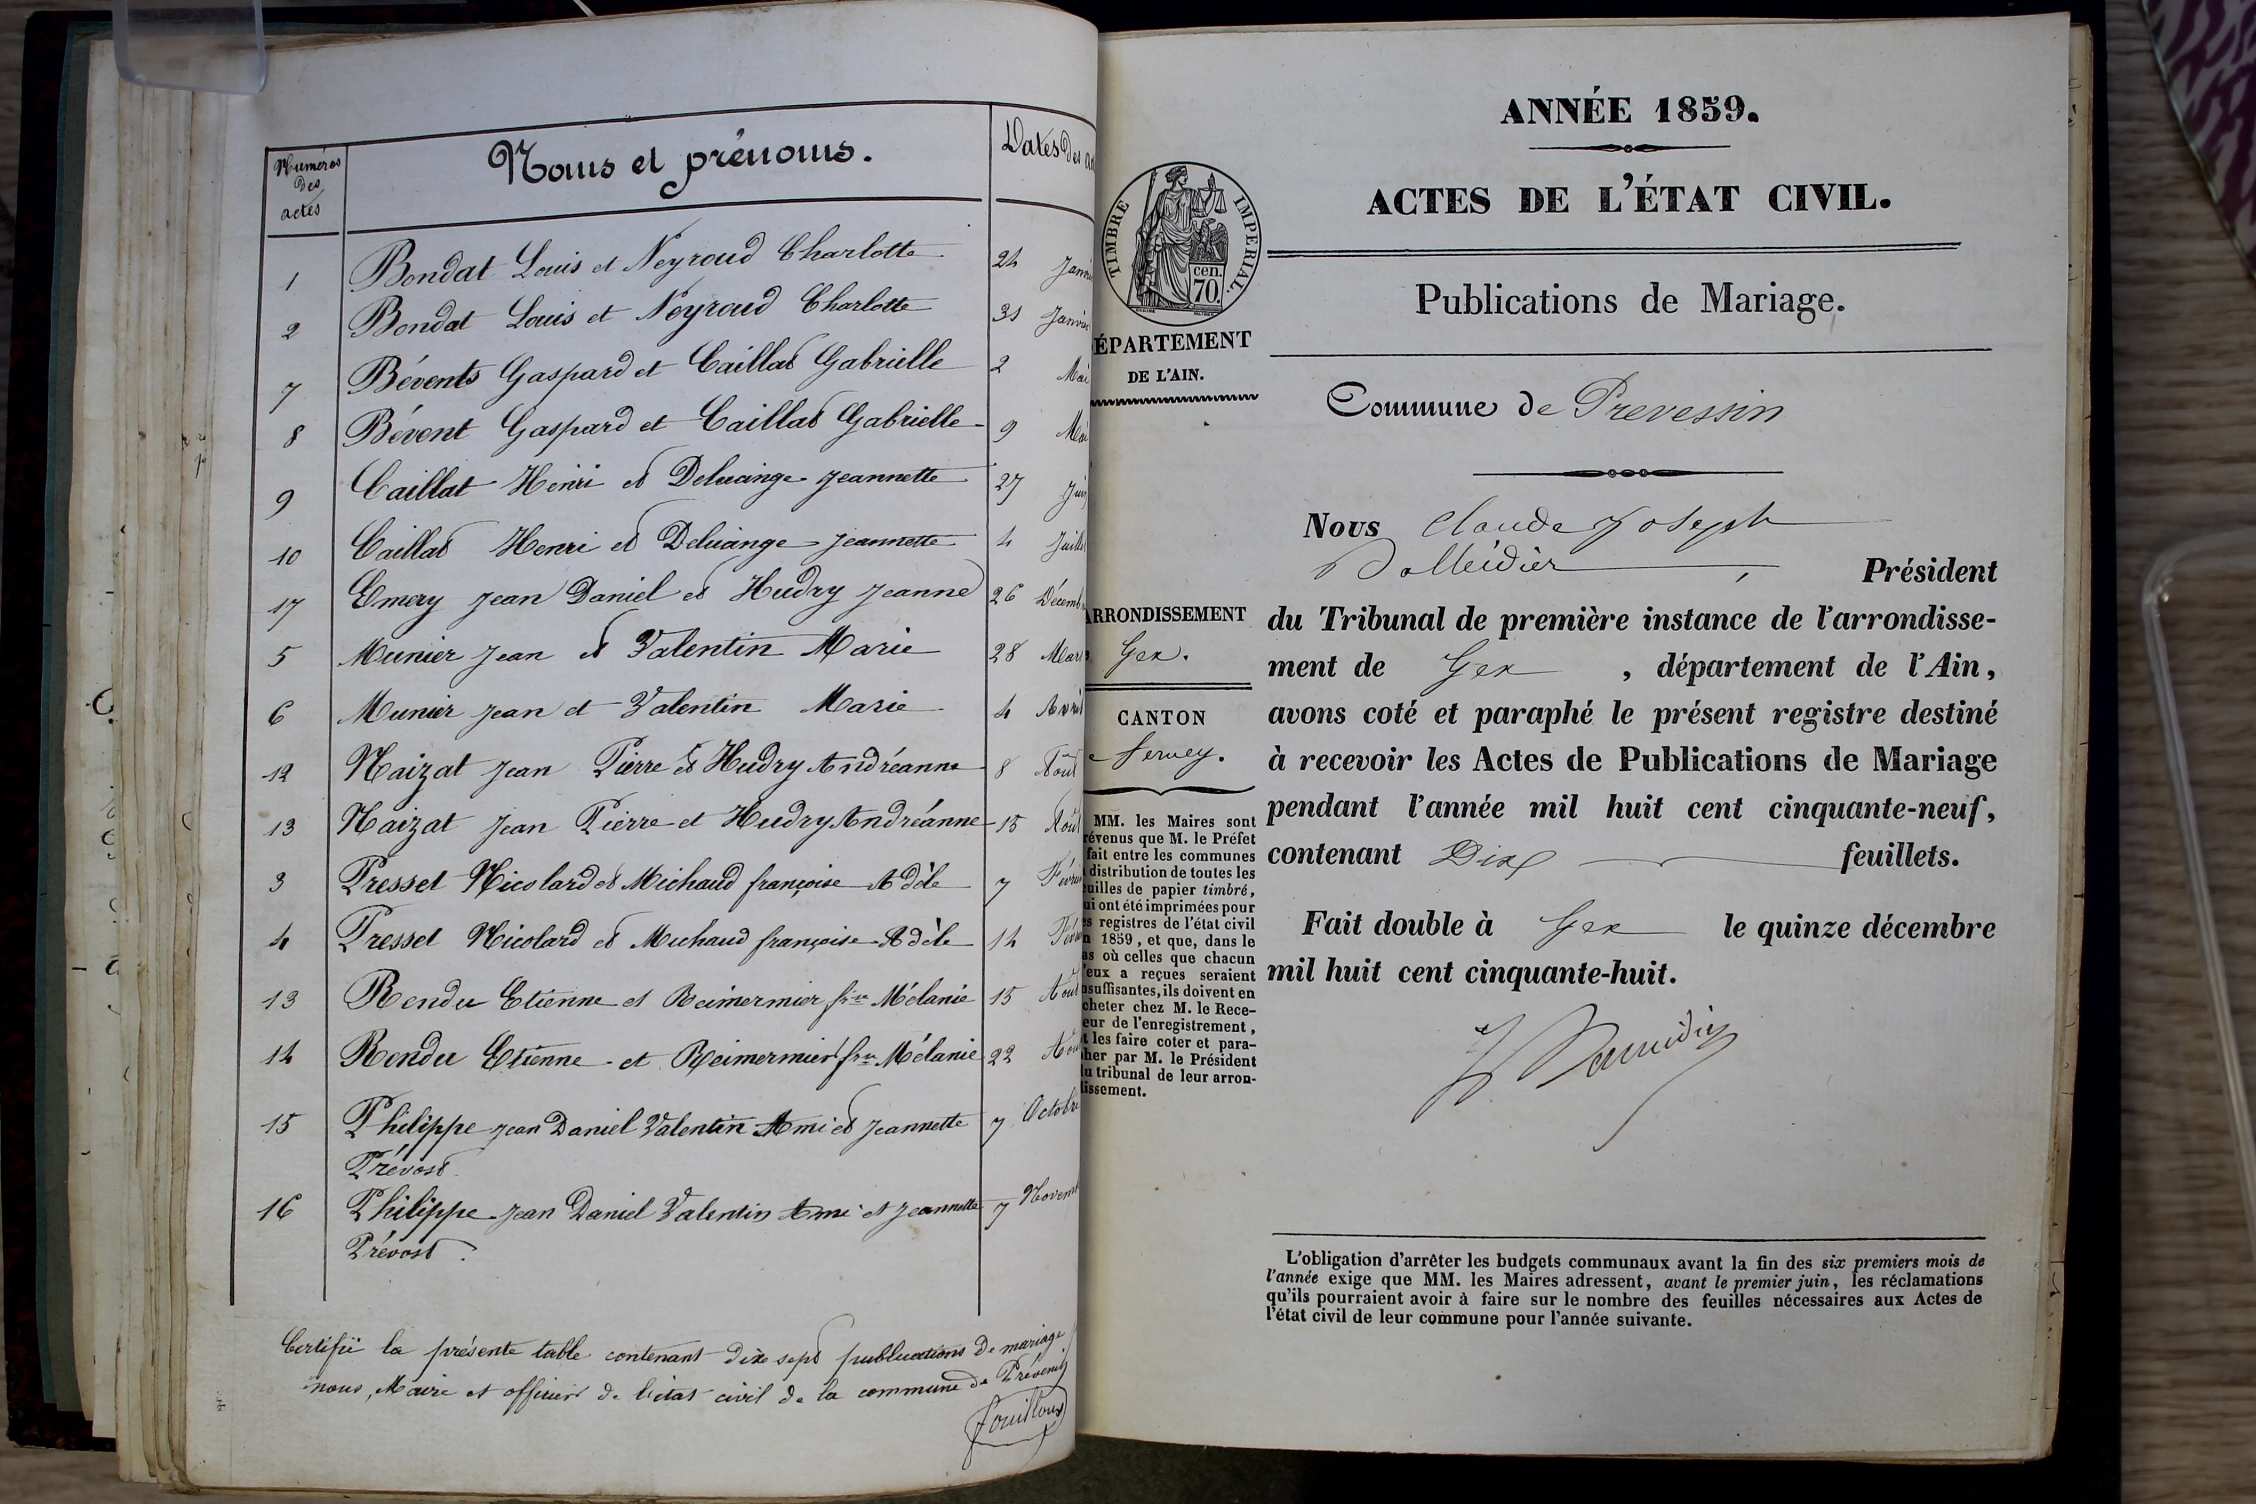 Numéros
des
actes
Noms et prénoms.
Dates des
1 Bondat Louis et Neyroud Charlotte 24 Janvi
2 Bondat Louis et Neyroud Charlotte 31 Janvier
7 Bévents Gaspard et Caillat Gabrielle 2 Mai
8 Bévent Gaspard et Caillat Gabrielle 9 Mai
9 Caillat Henri et Deluange Jeannette 27 Juin
10 Caillat Henri et Deluange Jeannette 4 Juill
17 Emery Jean Daniel et Hudry Jeanne 26 Décemb
5 Munier Jean et Valentin Marie 28 Mars
6 Munier Jean et Valentin Marie 4 Avril
12 Naizat Jean Pierre et Hudry Andréanne 8 Aout
13 Naizat Jean Pierre et Hudry Andréanne 15 Aout
3 Presset Nicolard et Michaud françoise Adèle 7 Février
4 Presset Nicolard et Michaud françoise Adèle 14 Févr
13 Rendu Etienne et Reimermier fse Mélanie 15 Aout
14 Rendu Etienne et Reimermier fse Mélanie 22 Aou
15 Philippe Jean Daniel Valentin Ami et Jeannette 7 Octobre
Prévost
16 Philippe Jean Daniel Valentin Ami et Jeannette 7 Novem
Prévost.
Certifié la présente table contenant dix sept publications de mariage
nous, Maire et officier de l'état civil de la commune de
Fouilloux
TIMBRE IMPERIAL.
cen.
70
ÉPARTEMENT
DE L'AIN.
ARRONDISSEMENT
Gex.
CANTON
e Ferney.
MM. les Maires sont
révenus que M. le Préfet
fait entre les communes
distribution de toutes les
uilles de papier timbré,
ui ont été imprimées pour
es registres de l'état civil
n 1859, et que, dans le
as où celles que chacun
'eux a reçues seraient
nsuffisantes, ils doivent en
cheter chez M. le Rece-
eur de l'enregistrement,
t les faire coter et para-
her par M. le Président
u tribunal de leur arron-
issement.
ANNÉE 1859.
ACTES DE L'ÉTAT CIVIL.
Publications de Mariage.
Commune de Prevessin
Nous Claude Joseph
Président
du Tribunal de première instance de l'arrondisse-
ment de Gex, département de l'Ain,
avons coté et paraphé le présent registre destiné
à recevoir les Actes de Publications de Mariage
pendant l'année mil huit cent cinquante-neuf,
contenant Dix feuillets.
Fait double à Gex le quinze décembre
mil huit cent cinquante-huit.
L'obligation d'arrêter les budgets communaux avant la fin des six premiers mois de
l'année exige que MM. les Maires adressent, avant le premier juin, les réclamations
qu'ils pourraient avoir à faire sur le nombre des feuilles nécessaires aux Actes de
l'état civil de leur commune pour l'année suivante.